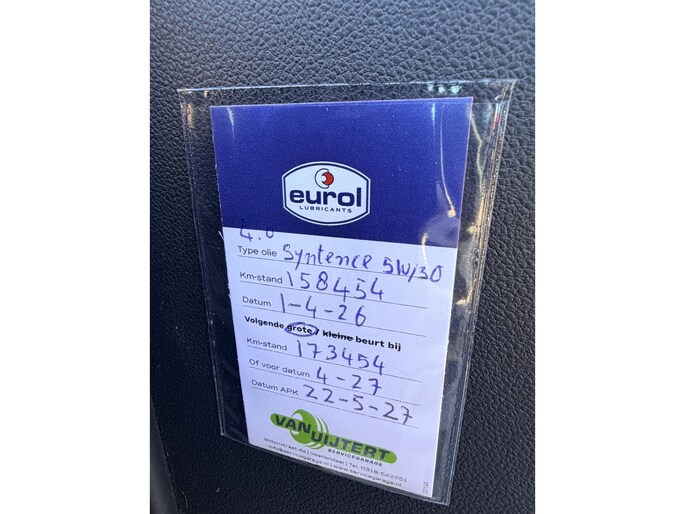 eurol
LUBRICANTS
4.0
Type olie Syntence 5W/30
Km-stand 158454
Datum 1-4-26
Volgende grote / kleine beurt bij
Km-stand 173454
Of voor datum 4-27
Datum APK 22-5-27
VAN UIJTERT
SERVICEGARAGE
| Veenendaal | Tel. 0318-522201
info@servicegarage.nl | www.servicegarage.nl